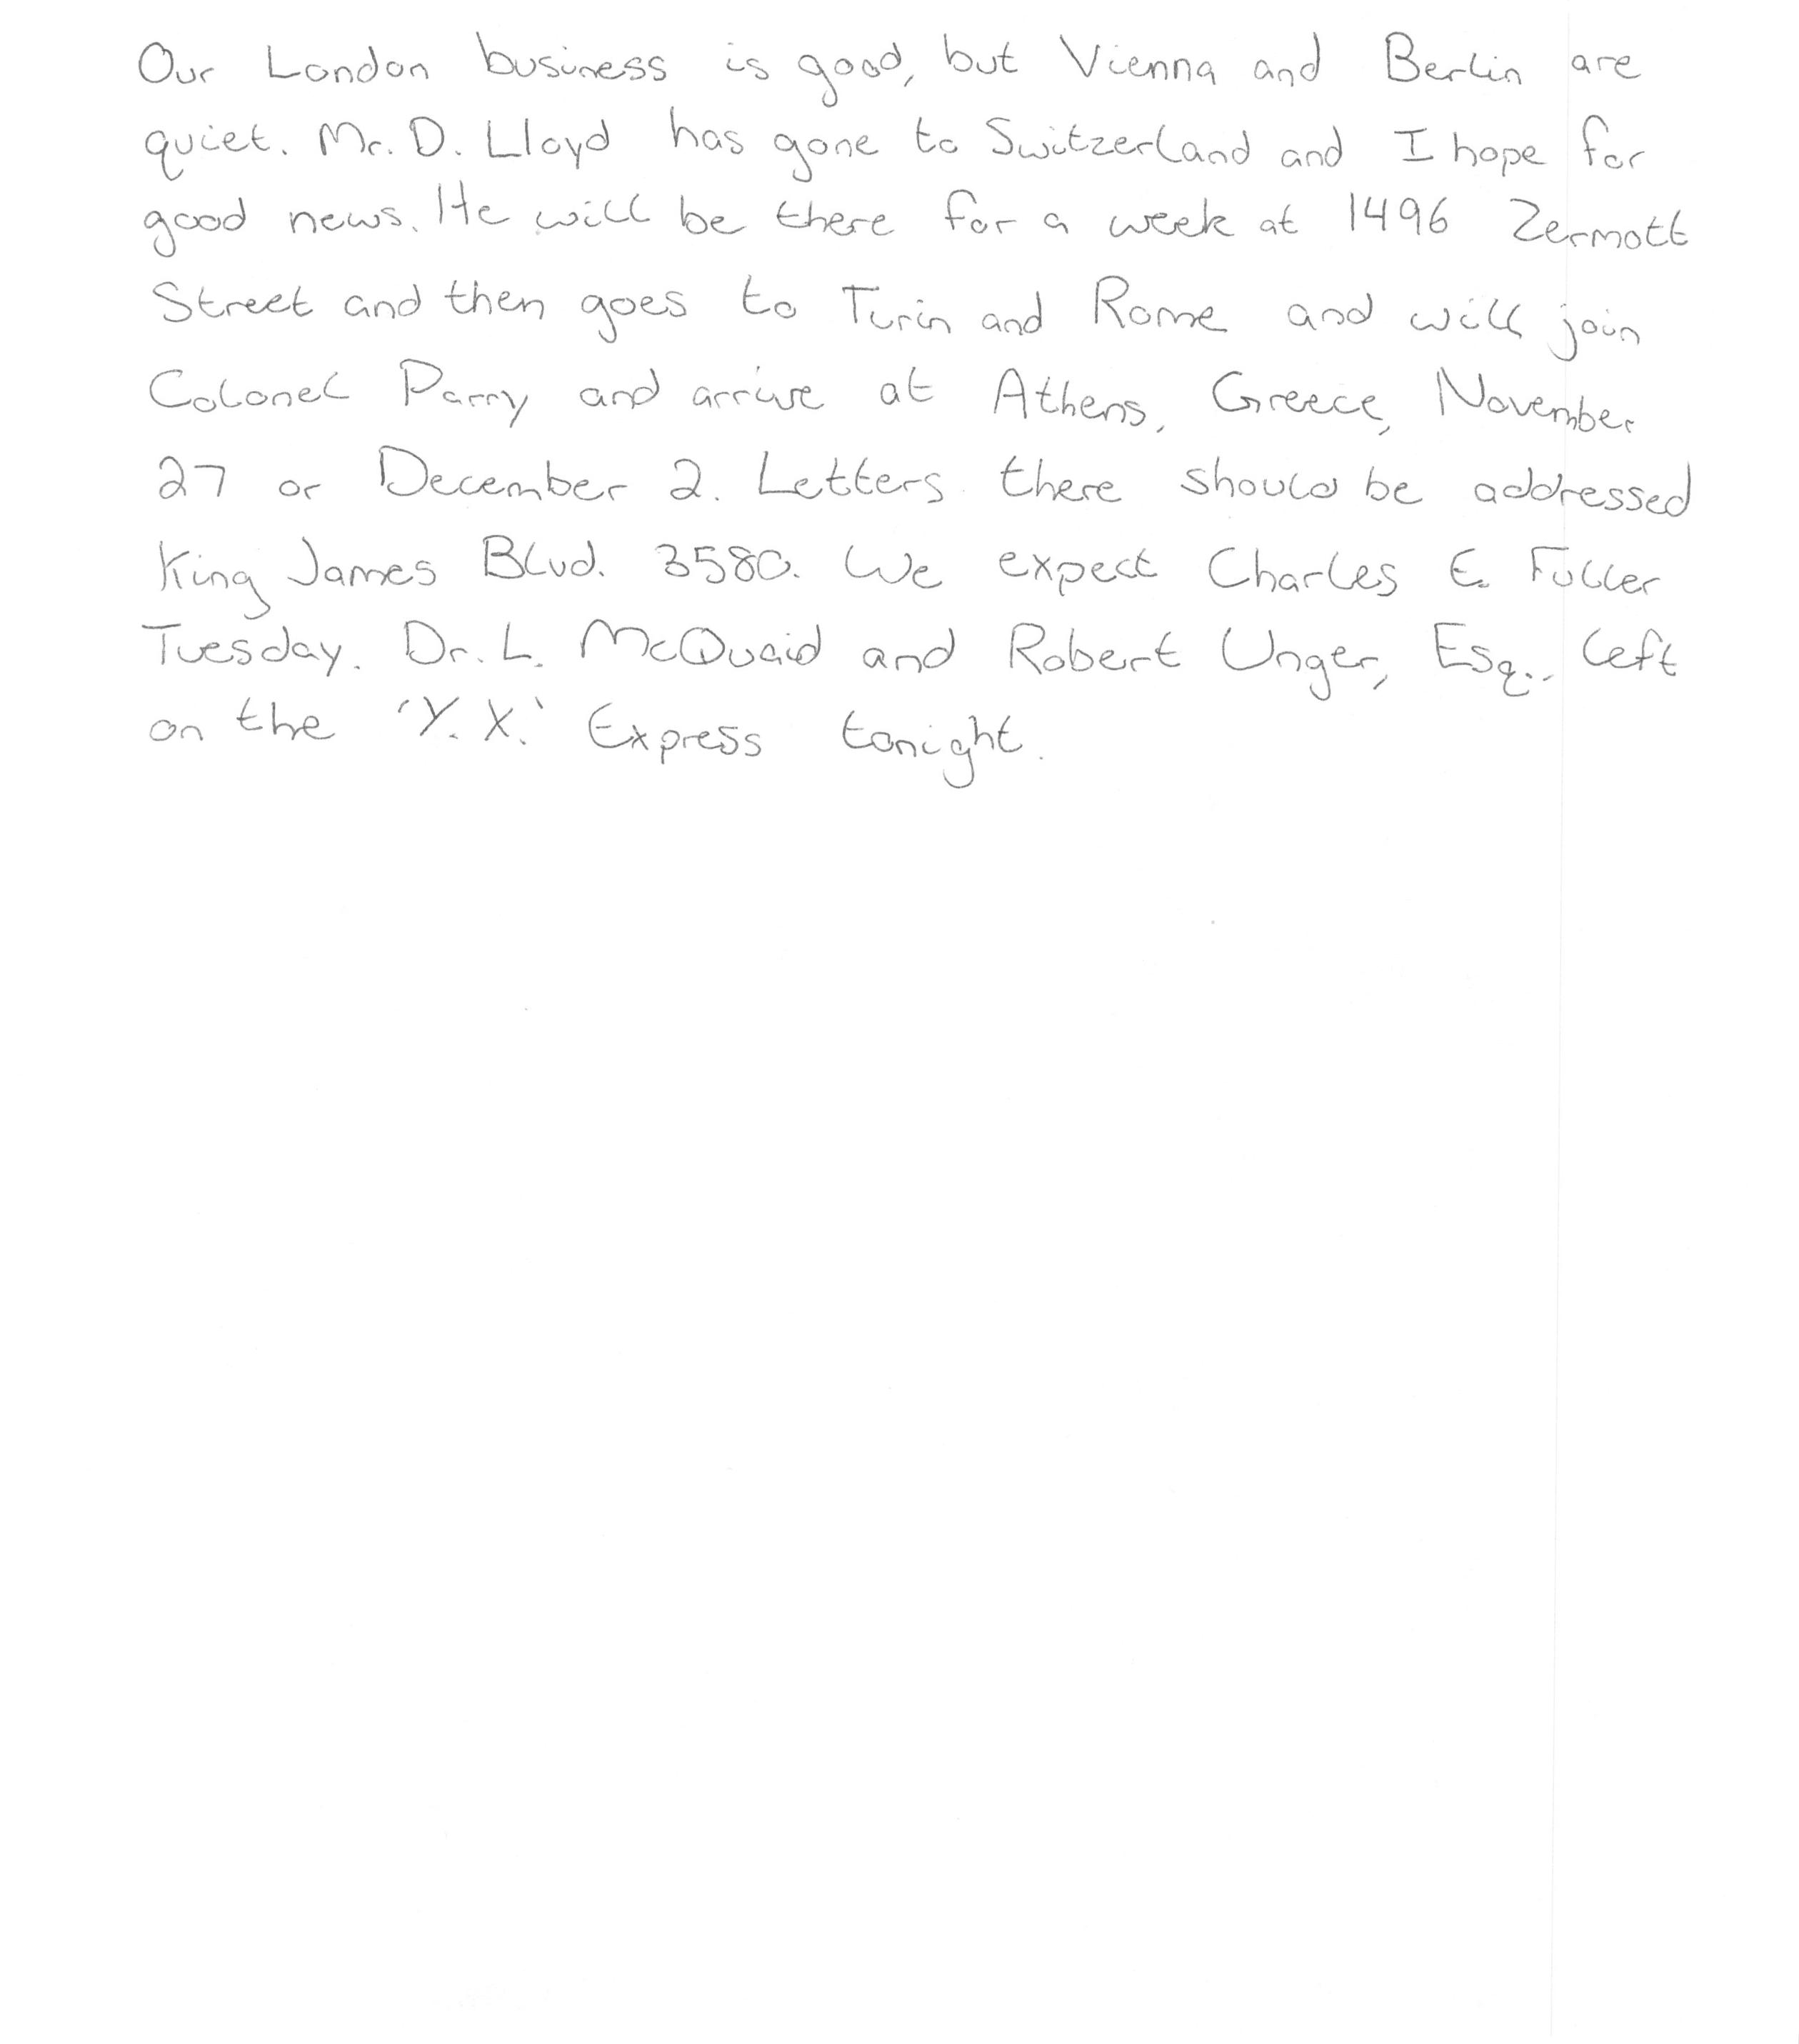 Our London business is good, but Vienna and Berlin are
quiet. Mr. D. Lloyd has gone to Switzerland and I hope for
good news. He will be there for a week at 1496 Zermott
Street and then goes to Turin and Rome and will join
Colonel Parry and arrive at Athens, Greece, November
27 or December 2. Letters there should be addressed
King James Blvd. 3580. We expect Charles E. Fuller
Tuesday. Dr. L. McQuaid and Robert Unger, Esq., left
on the 'Y. X.' Express tonight.